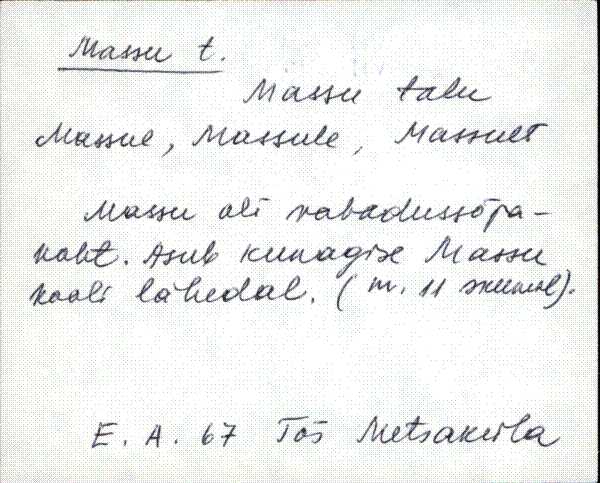 Massu t.
Massu talu
Massul, Massule, Massult
Massu oli vabadussõja-
koht. Asub kunagise Massu
kooli lähedal. (nr. 11 skeemil).
E. A. 67 Tõs Metsaküla